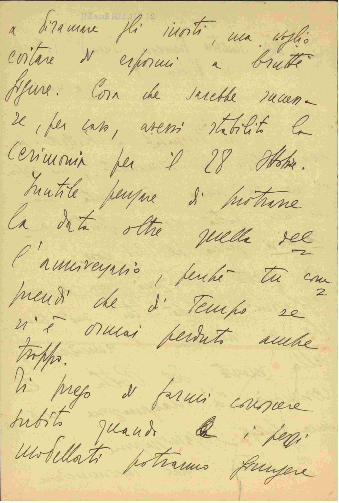 a diramare gli inviti, ma voglio
evitare di espormi a brutte
figure. Cosa che sarebbe succes=
sa, per caso, avessi stabilito la
cerimonia per il 28 Ottobre.
Inutile pensare di protrarre
la data oltre quella del=
l'anniversario, perché tu com=
prendi che di Tempo se
n'è ormai perduto anche
troppo.
Ti prego di farmi conoscere
subito quando i pezzi
modellati potranno giungere